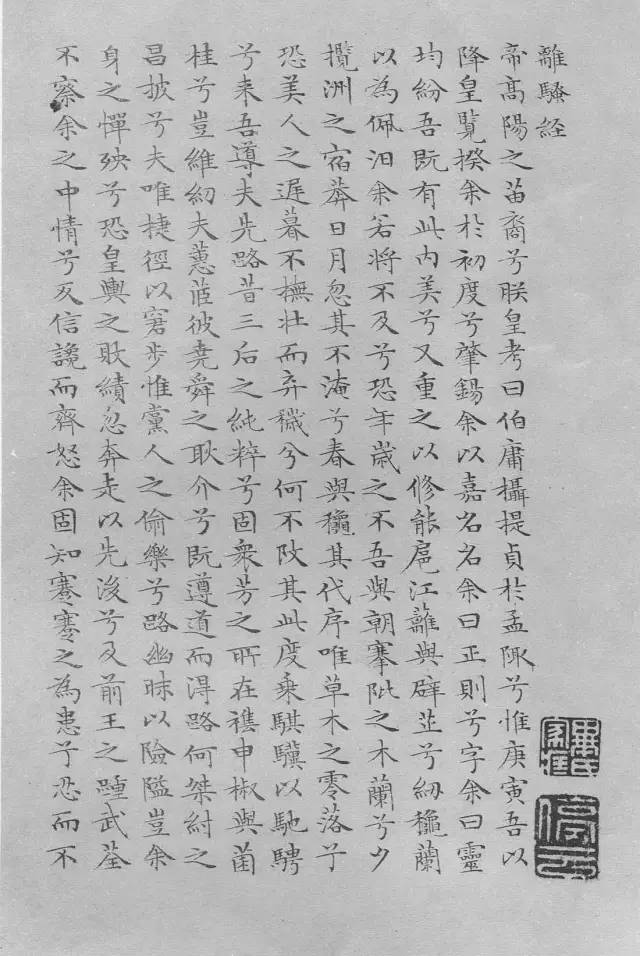 離騷経
帝高陽之苗裔兮朕皇考曰伯庸攝提貞於孟陬兮惟庚寅吾以
降皇覽揆余於初度兮肇錫余以嘉名名余曰正則兮字余曰靈
均紛吾既有此内美兮又重之以修能扈江蘺與辟芷兮紉龝蘭
以為佩汨余若將不及兮恐年歲之不吾與朝搴阰之木蘭兮夕
攬洲之宿莽日月忽其不淹兮春與龝其代序唯草木之零落兮
恐美人之遲暮不撫壯而弃穢兮何不改其此度乗騏驥以馳騁
兮来吾導夫先路昔三后之純粹兮固衆芳之所在雜申椒與菌
桂兮豈維紉夫蕙茝彼堯舜之耿介兮既遵道而得路何桀紂之
昌披兮夫唯捷徑以窘步惟黨人之偷樂兮路幽昧以險隘豈余
身之憚殃兮恐皇輿之敗績忽奔走以先後兮及前王之踵武荃
不察余之中情兮反信讒而齊怒余固知謇謇之為患兮忍而不
停云